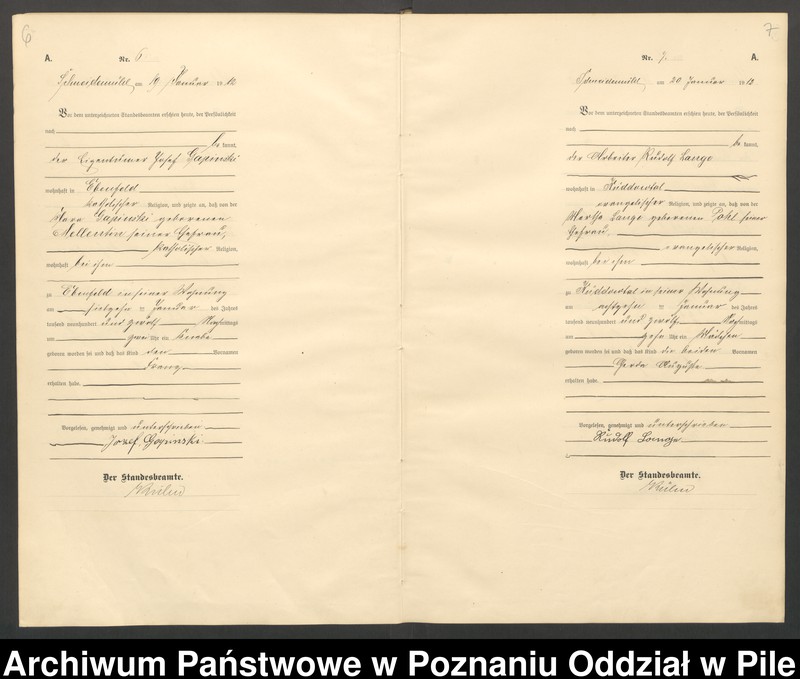 6
A.
Nr. 6
Schneidemühl, am 19 Januar 1912
Vor dem unterzeichneten Standesbeamten erschien heute, der Persönlichkeit
nach
be kannt,
der Eigentümer Josef Gapinski
wohnhaft in Ebenfeld
katholischer Religion, und zeigte an, daß von der
Gapinski geborenen
Mellentin seiner Ehefrau,
katholischer Religion,
wohnhaft bei ihm
zu Ebenfeld in seiner Wohnung
am siebzehn ten Januar des Jahres
tausend neunhundert und zwölf Nachmittags
um zwei Uhr ein Knabe
geboren worden sei und daß das Kind den Vornamen
Franz
erhalten habe.
Vorgelesen, genehmigt und unterschrieben
Jozef Gapinski
Der Standesbeamte.
7
Nr. 7
A.
Schneidemühl, am 20 Januar 1912
Vor dem unterzeichneten Standesbeamten erschien heute, der Persönlichkeit
nach
be kannt,
der Arbeiter Rudolf Lange
wohnhaft in Küddowtal
evangelischer Religion, und zeigte an, daß von der
Martha Lange geborenen Pahl seiner
Ehefrau,
evangelischer Religion,
wohnhaft bei ihm
zu Küddowtal in seiner Wohnung
am achtzehn ten Januar des Jahres
tausend neunhundert und zwölf Nachmittags
um zehn Uhr ein Mädchen
geboren worden sei und daß das Kind die beiden Vornamen
Gerda Auguste
erhalten habe.
Vorgelesen, genehmigt und unterschrieben
Rudolf Lange
Der Standesbeamte.
Archiwum Państwowe w Poznaniu Oddział w Pile